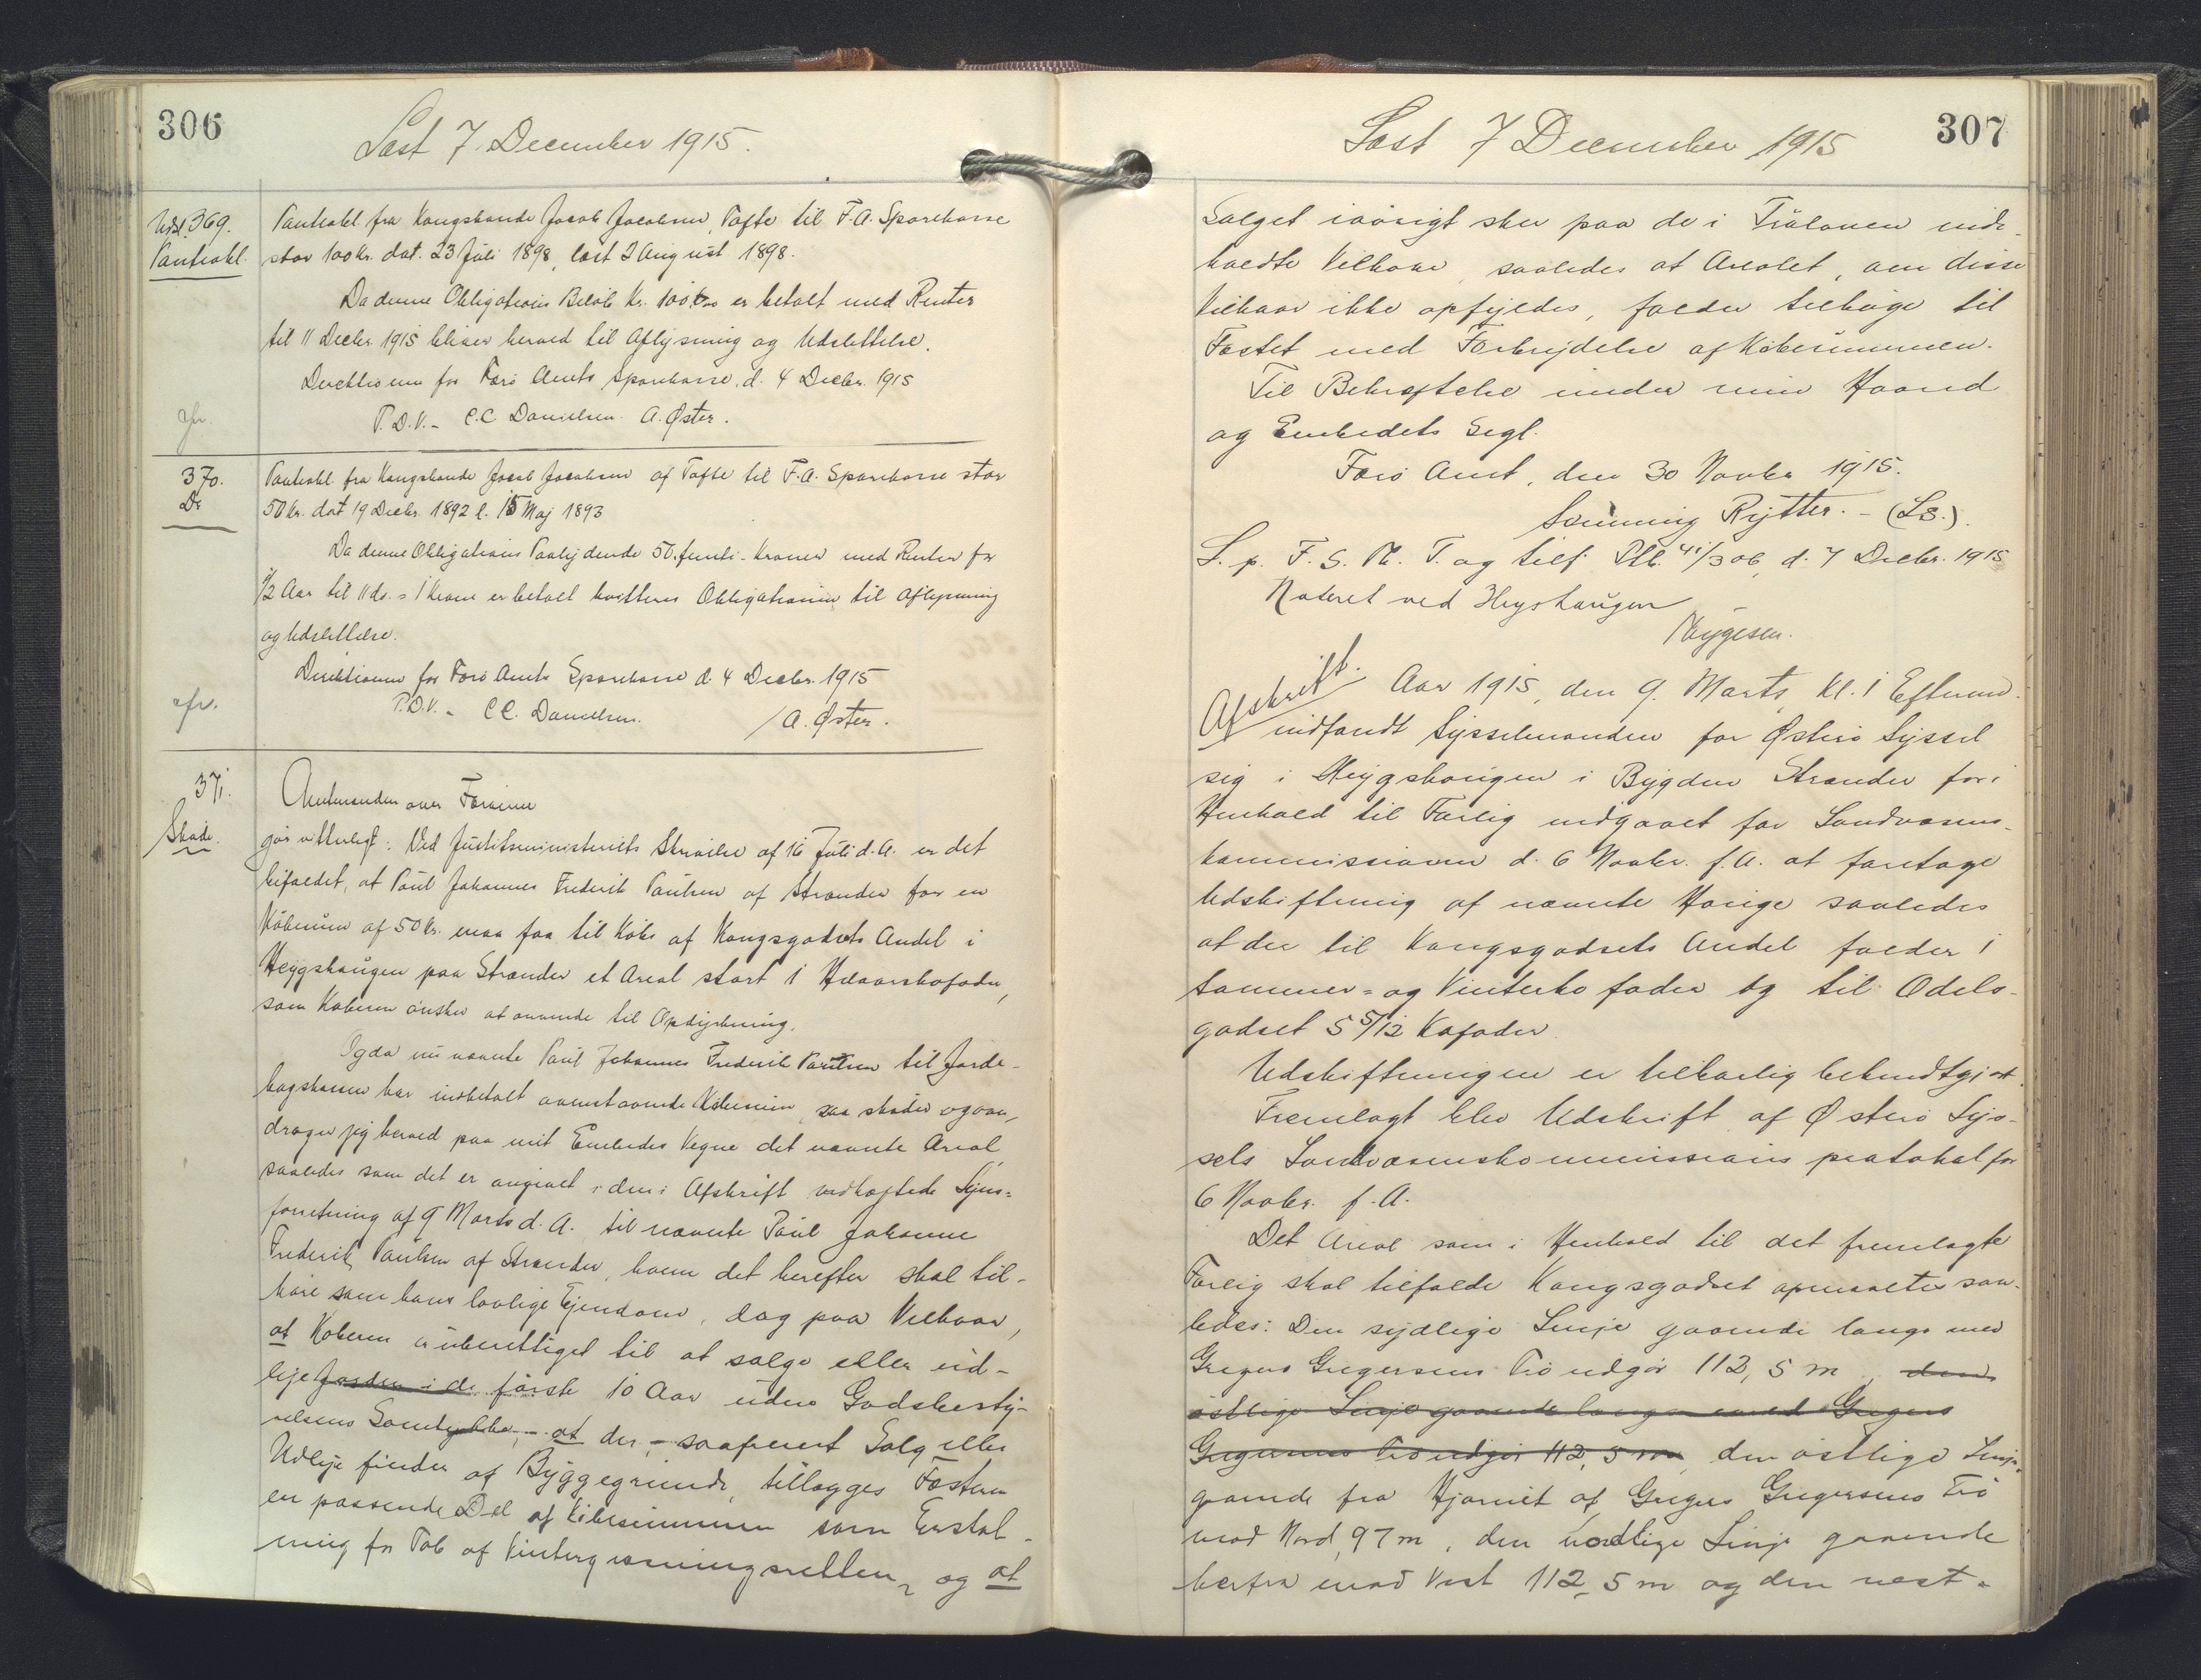 306
Læst 7. December 1915.
Udsl. 369.
Panteobl.
Panteobl. fra Kongsbonde Jacob Jacobsen, Tofte til F. A. Sparekasse
stor 100 Kr. dat. 23 Juli 1898, læst 2 August 1898.
Da denne Obligations Beløb Kr. 100 er betalt med Renter
til 11 Decbr. 1915 bliver herved til Aflysning og Udslettelse.
Direktionen for Færø Amts Sparekasse, d. 4 Decbr. 1915
P.D.V. - C.C. Danielsen. A. Øster.
afsr.
370.
Do
Panteobl. fra Kongsbonde Jacob Jacobsen af Tofte til F. A. Sparekasse stor
50 Kr. dat 19 Decbr. 1892 l. 15 Maj 1893
Da denne Obligations Paalydende 50, femti-Kroner med Renter for
1/2 Aar til 11 ds. = 1 Krone er betalt kvitteres Obligationen til Aflysning
og Udslettelse.
Direktionen for Færø Amts Sparekasse d. 4 Decbr. 1915
P.D.V. - C.C. Danielsen. / A. Øster.
afsr.
371.
Skøde.
Amtmanden over Færøerne
gør vitterligt: Ved Justitsministeriets Skrivelse af 16 Juli d.A. er det
bifaldet, at Poul Johannes Frederik Poulsen af Strænder for en
Købesum af 50 Kr. maa faa til Købs af Kongsgodsets Andel i
Heygshaugen paa Strænder et Areal stort 1 Helaarskofoder,
som Køberen ønsker at anvende til Opdyrkning.
Og da nu nævnte Poul Johannes Frederik Poulsen til Jorde-
bogskassen har indbetalt ovenstaaende Købesum, saa skøder og over-
drager jeg herved paa mit Embedes Vegne det nævnte Areal,
saaledes som det er angivet i den i Afskrift vedhæftede Syns=
forretning af 9 Marts d. A. til nævnte Poul Johannes
Frederik Poulsen af Strænder, hvem det herefter skal til-
høre som hans lovlige Ejendom, dog paa Vilkaar,
at Køberen er uberettiget til at sælge eller ud-
leje Jorden i de første 10 Aar uden Godsbesty-
relsens Samtykke, - at der, - saafremt Salg eller
Udleje finder af Byggegrunde, tillægges Fæsteren
en passende Del af Købesummen som Erstat-
ning for Tab af Vintergræsningsretten, og at
307
Læst 7 December 1915
Salget iøvrigt sker paa de i Træloven inde-
holdte Vilkaar, saaledes at Arealet, om disse
Vilkaar ikke opfyldes, falder tilbage til
Fæstet med Fortrydelse af Købesummen.
Til Bekræftelse under min Haand
og Embedets Segl.
Færø Amt, den 30 Novbr. 1915.
Svenning Rytter. - (LS.).
L. p. F. S. Th. T. og tilf. Ptb. 41/306, d. 7 Decbr. 1915
Noteret ved Heyshaugen
Thygesen.
Afskrift.
Aar 1915, den 9. Marts, Kl. 1 Efterm.
indfandt Sysselmanden for Østerø Syssel
sig i Heygshaugen i Bygden Strænder for i
Henhold til Forlig indgaaet for Landvæsens-
kommissionen d. 6 Novbr. f. A. at foretage
Udskiftning af nævnte Hauge saaledes
at der til Kongsgodsets Andel falder 1
Sommer= og Vinterkofoder og til Odels-
godset 5 5/12 Kofoder.
Udskiftningen er tilbørlig bekendtgjort.
Fremlagt blev Udskrift af Østerø Sys-
sels Landvæsenskommissions protokol for
6 Novbr. f. A.
Det Areal som i Henhold til det fremlagte
Forlig skal tilfalde Kongsgodset opmaaltes saa-
ledes: Den sydlige Linje gaaende langs med
Gregers Gregersens Trø udgør 112,5 m, den
østlige Linje gaaende langs med Gregers
Gregersens Trø udgør 112,5 m, den østlige Linje
gaaende fra Hjørnet af Gregers Gregersens Trø
mod Nord, 97 m, den nordlige Linje gaaende
herfra mod Vest 112,5 m og den vest-